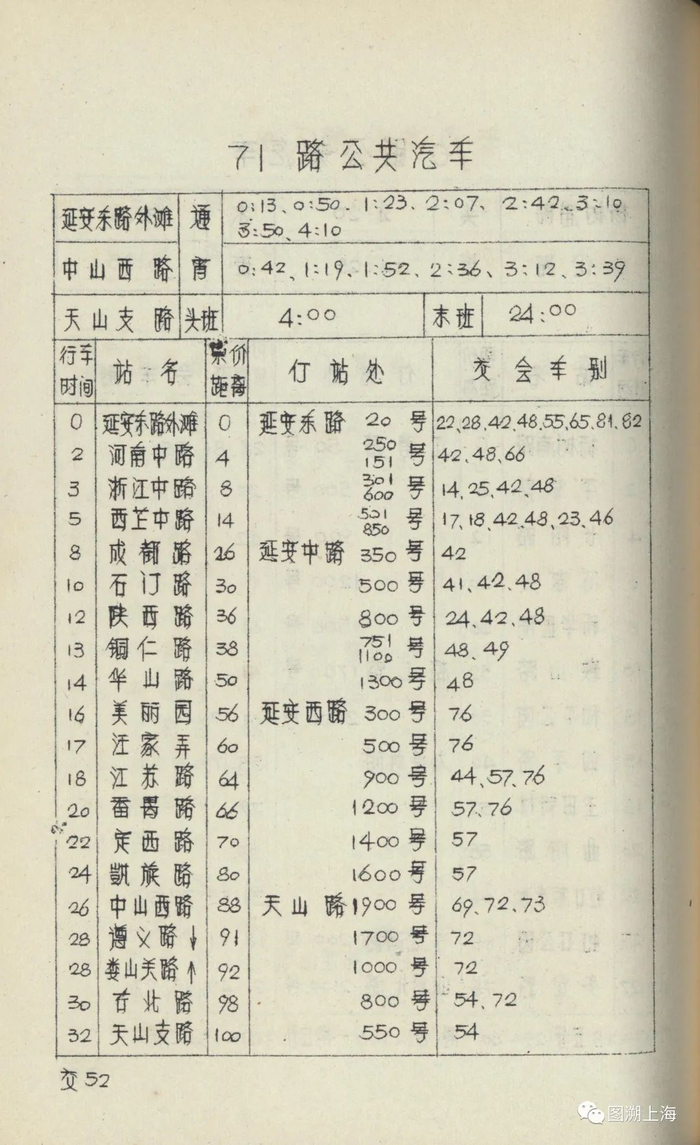 71 路公共汽车
延安东路外滩 通宵 0:13、0:50、1:23、2:07、2:42、3:10
3:50、4:10
中山西路 0:42、1:19、1:52、2:36、3:12、3:39
天山支路 头班 4:00 末班 24:00
行车时间 站名 票价距离 仃站处 交会车别
0 延安东路外滩 0 延安东路 20号 22、28、42、48、55、65、81、82
2 河南中路 4 250 151号 42、48、66
3 浙江中路 8 301 600号 14、25、42、48
5 西芷中路 14 501 850号 17、18、42、48、23、46
8 成都路 26 延安中路 350号 42
10 石门路 30 500号 41、42、48
12 陕西路 36 800号 24、42、48
13 铜仁路 38 751 1100号 48、49
14 华山路 50 1300号 48
16 美丽园 56 延安西路 300号 76
17 汪家弄 60 500号 76
18 江苏路 64 900号 44、57、76
20 番禺路 66 1200号 57、76
22 定西路 70 1400号 57
24 凯旋路 80 1600号 57
26 中山西路 88 天山路 1900号 69、72、73
28 遵义路↓ 91 1700号 72
28 娄山关路↑ 92 1000号 72
30 北路 98 800号 54、72
32 天山支路 100 550号 54
交52
图溯上海